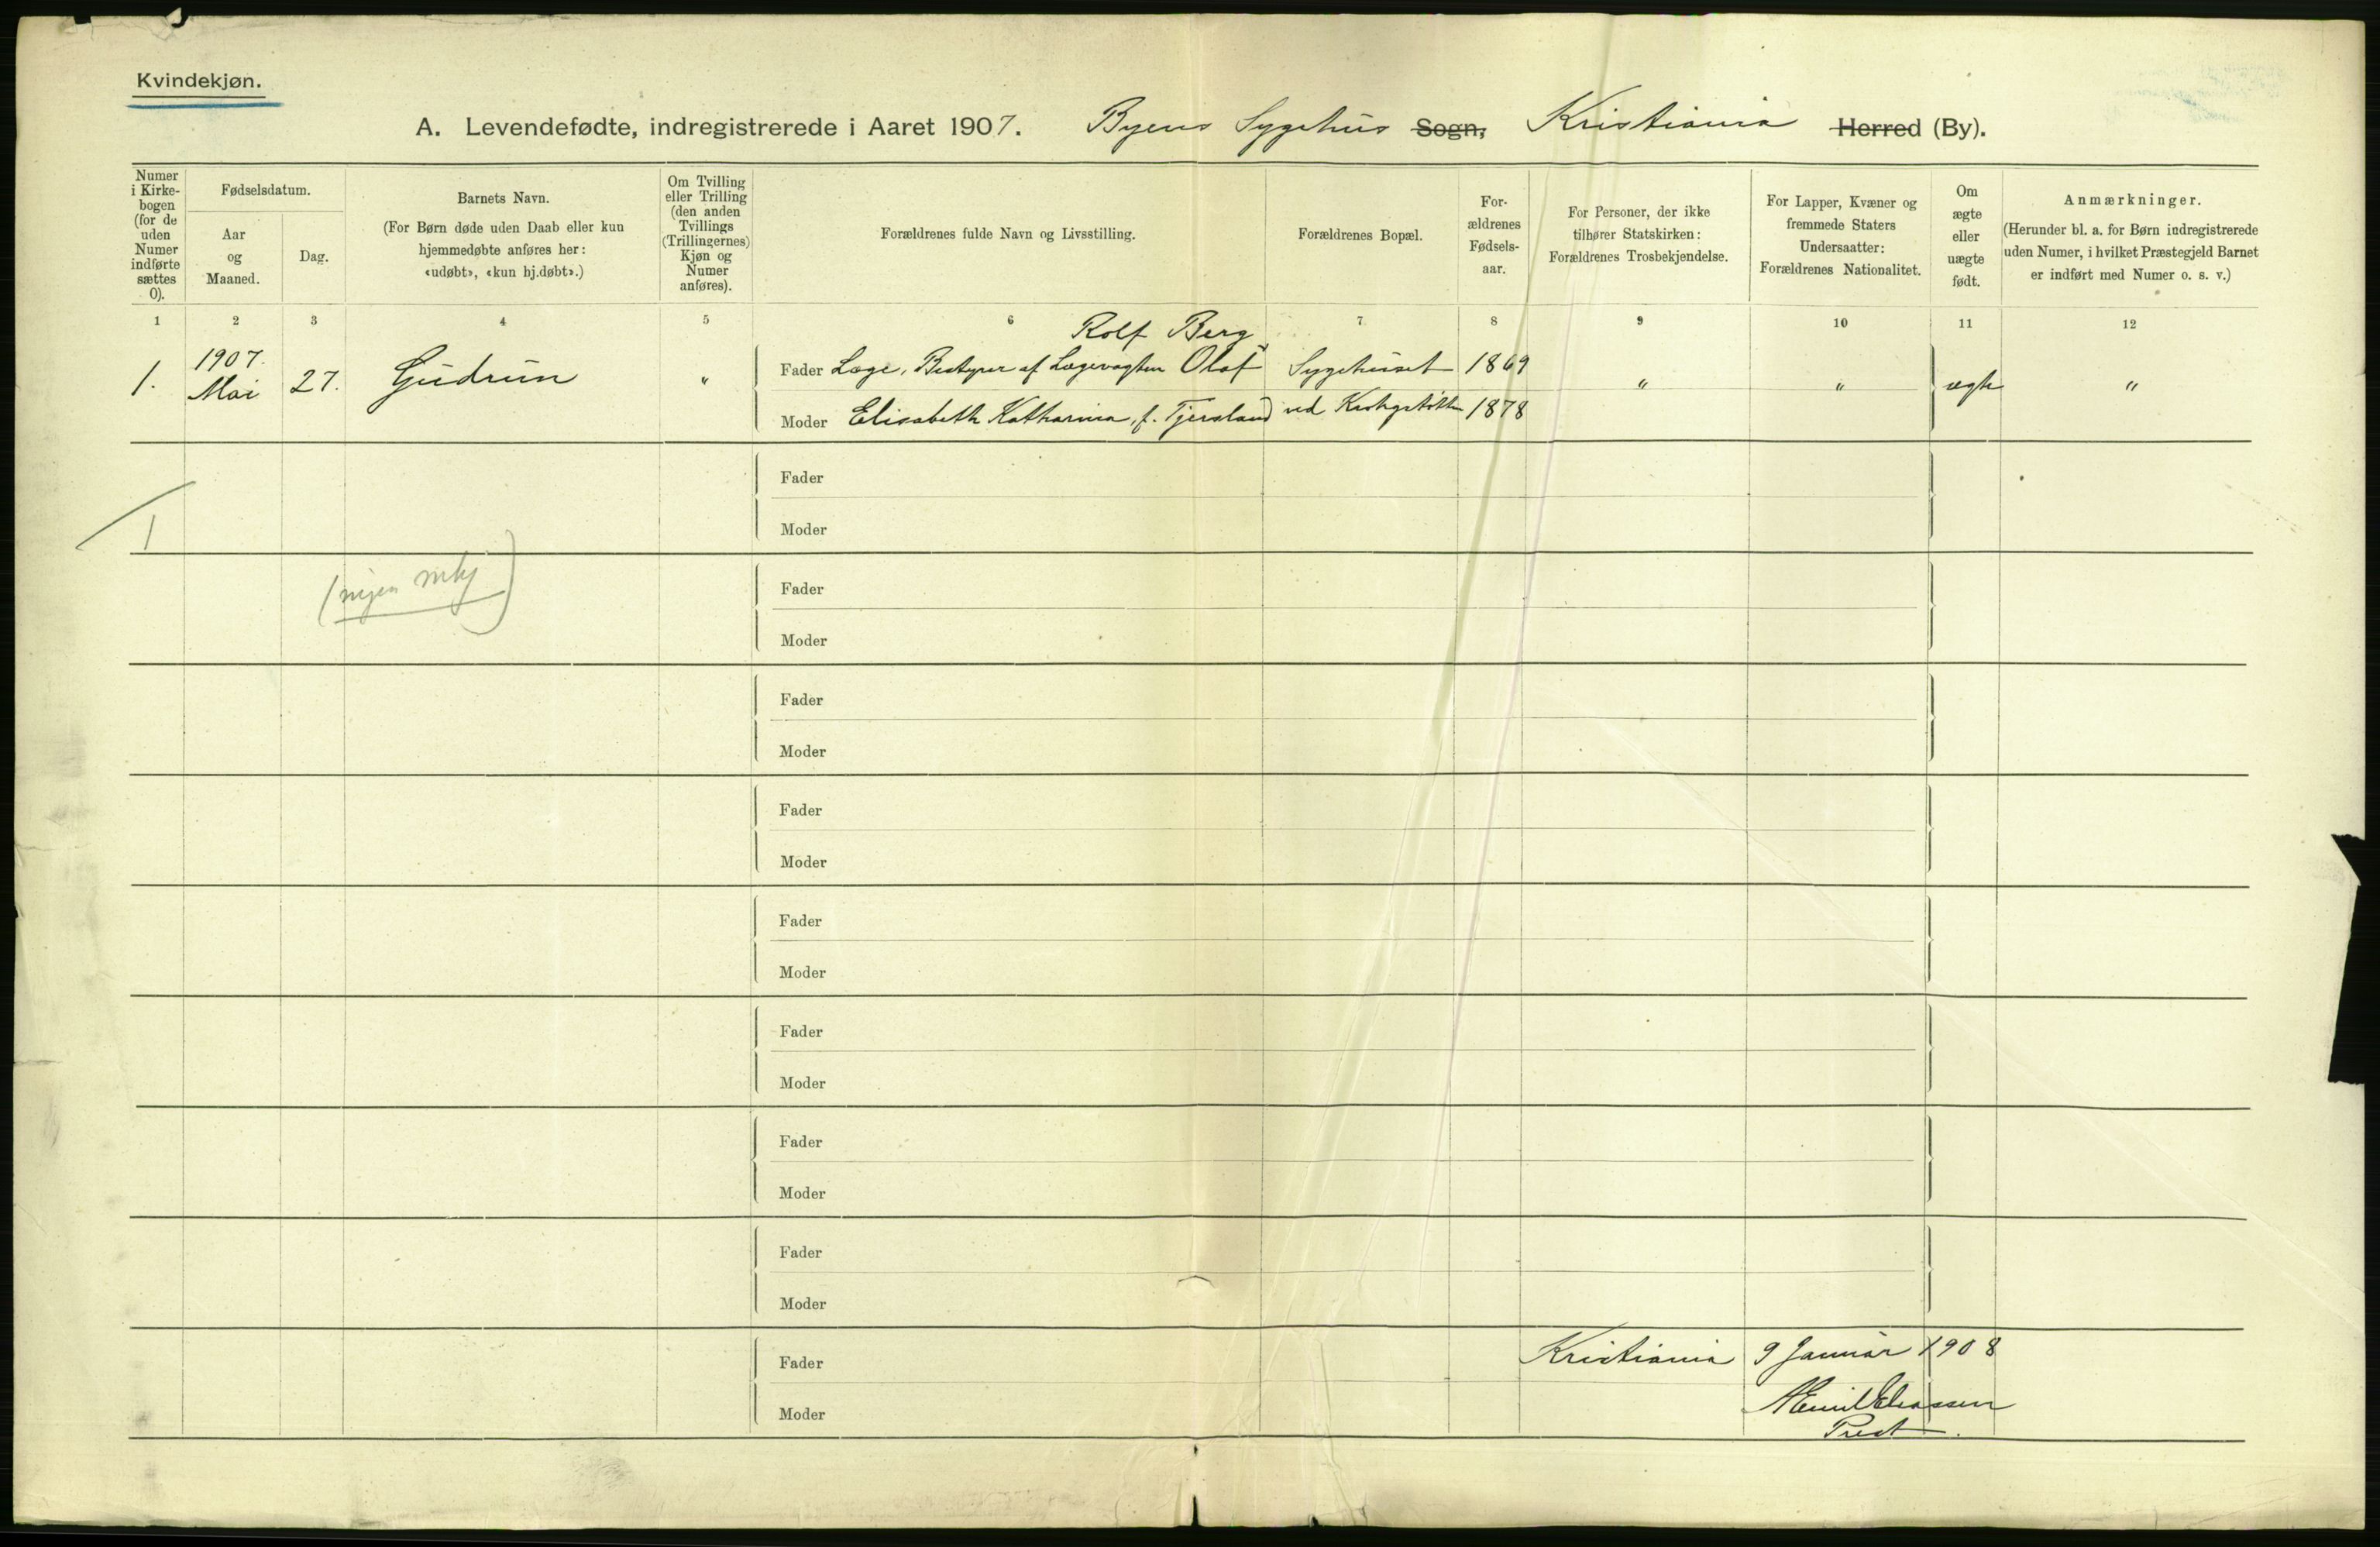 Kvindekjøn.
A. Levendefødte, indregistrerede i Aaret 1907. Byens Sygehus Sogn, Kristiania Herred (By).
Numer
i Kirke-
bogen
(for de
uden
Numer
indførte
sættes
0).
Fødselsdatum.
Aar
og
Maaned.
Dag.
Barnets Navn.
(For Børn døde uden Daab eller kun
hjemmedøbte anføres her:
«udøbt», «kun hj.døbt».)
Om Tvilling
eller Trilling
(den anden
Tvillings
(Trillingernes)
Kjøn og
Numer
anføres).
Forældrenes fulde Navn og Livsstilling.
Forældrenes Bopæl.
For-
ældrenes
Fødsels-
aar.
For Personer, der ikke
tilhører Statskirken:
Forældrenes Trosbekjendelse.
For Lapper, Kvæner og
fremmede Staters
Undersaatter:
Forældrenes Nationalitet.
Om
ægte
eller
uægte
født.
Anmærkninger.
(Herunder bl. a. for Børn indregistrerede
uden Numer, i hvilket Præstegjeld Barnet
er indført med Numer o. s. v.)
1 2 3 4 5 6 7 8 9 10 11 12
Rolf Berg
1. 1907. Mai 27. Gudrun " Fader Læge, Bestyrer af Lægevagten Olaf Sygehuset 1869 " " ægte "
Moder Elisabeth Katharina, f. Tjersland ved Krohgstøtten 1878
Fader
1
Moder
Fader
Moder
Fader
Moder
Fader
Moder
Fader
Moder
Fader
Moder
Fader
Moder
Fader
Moder
Fader Kristiania 9 Januar 1908
Moder
Prest.